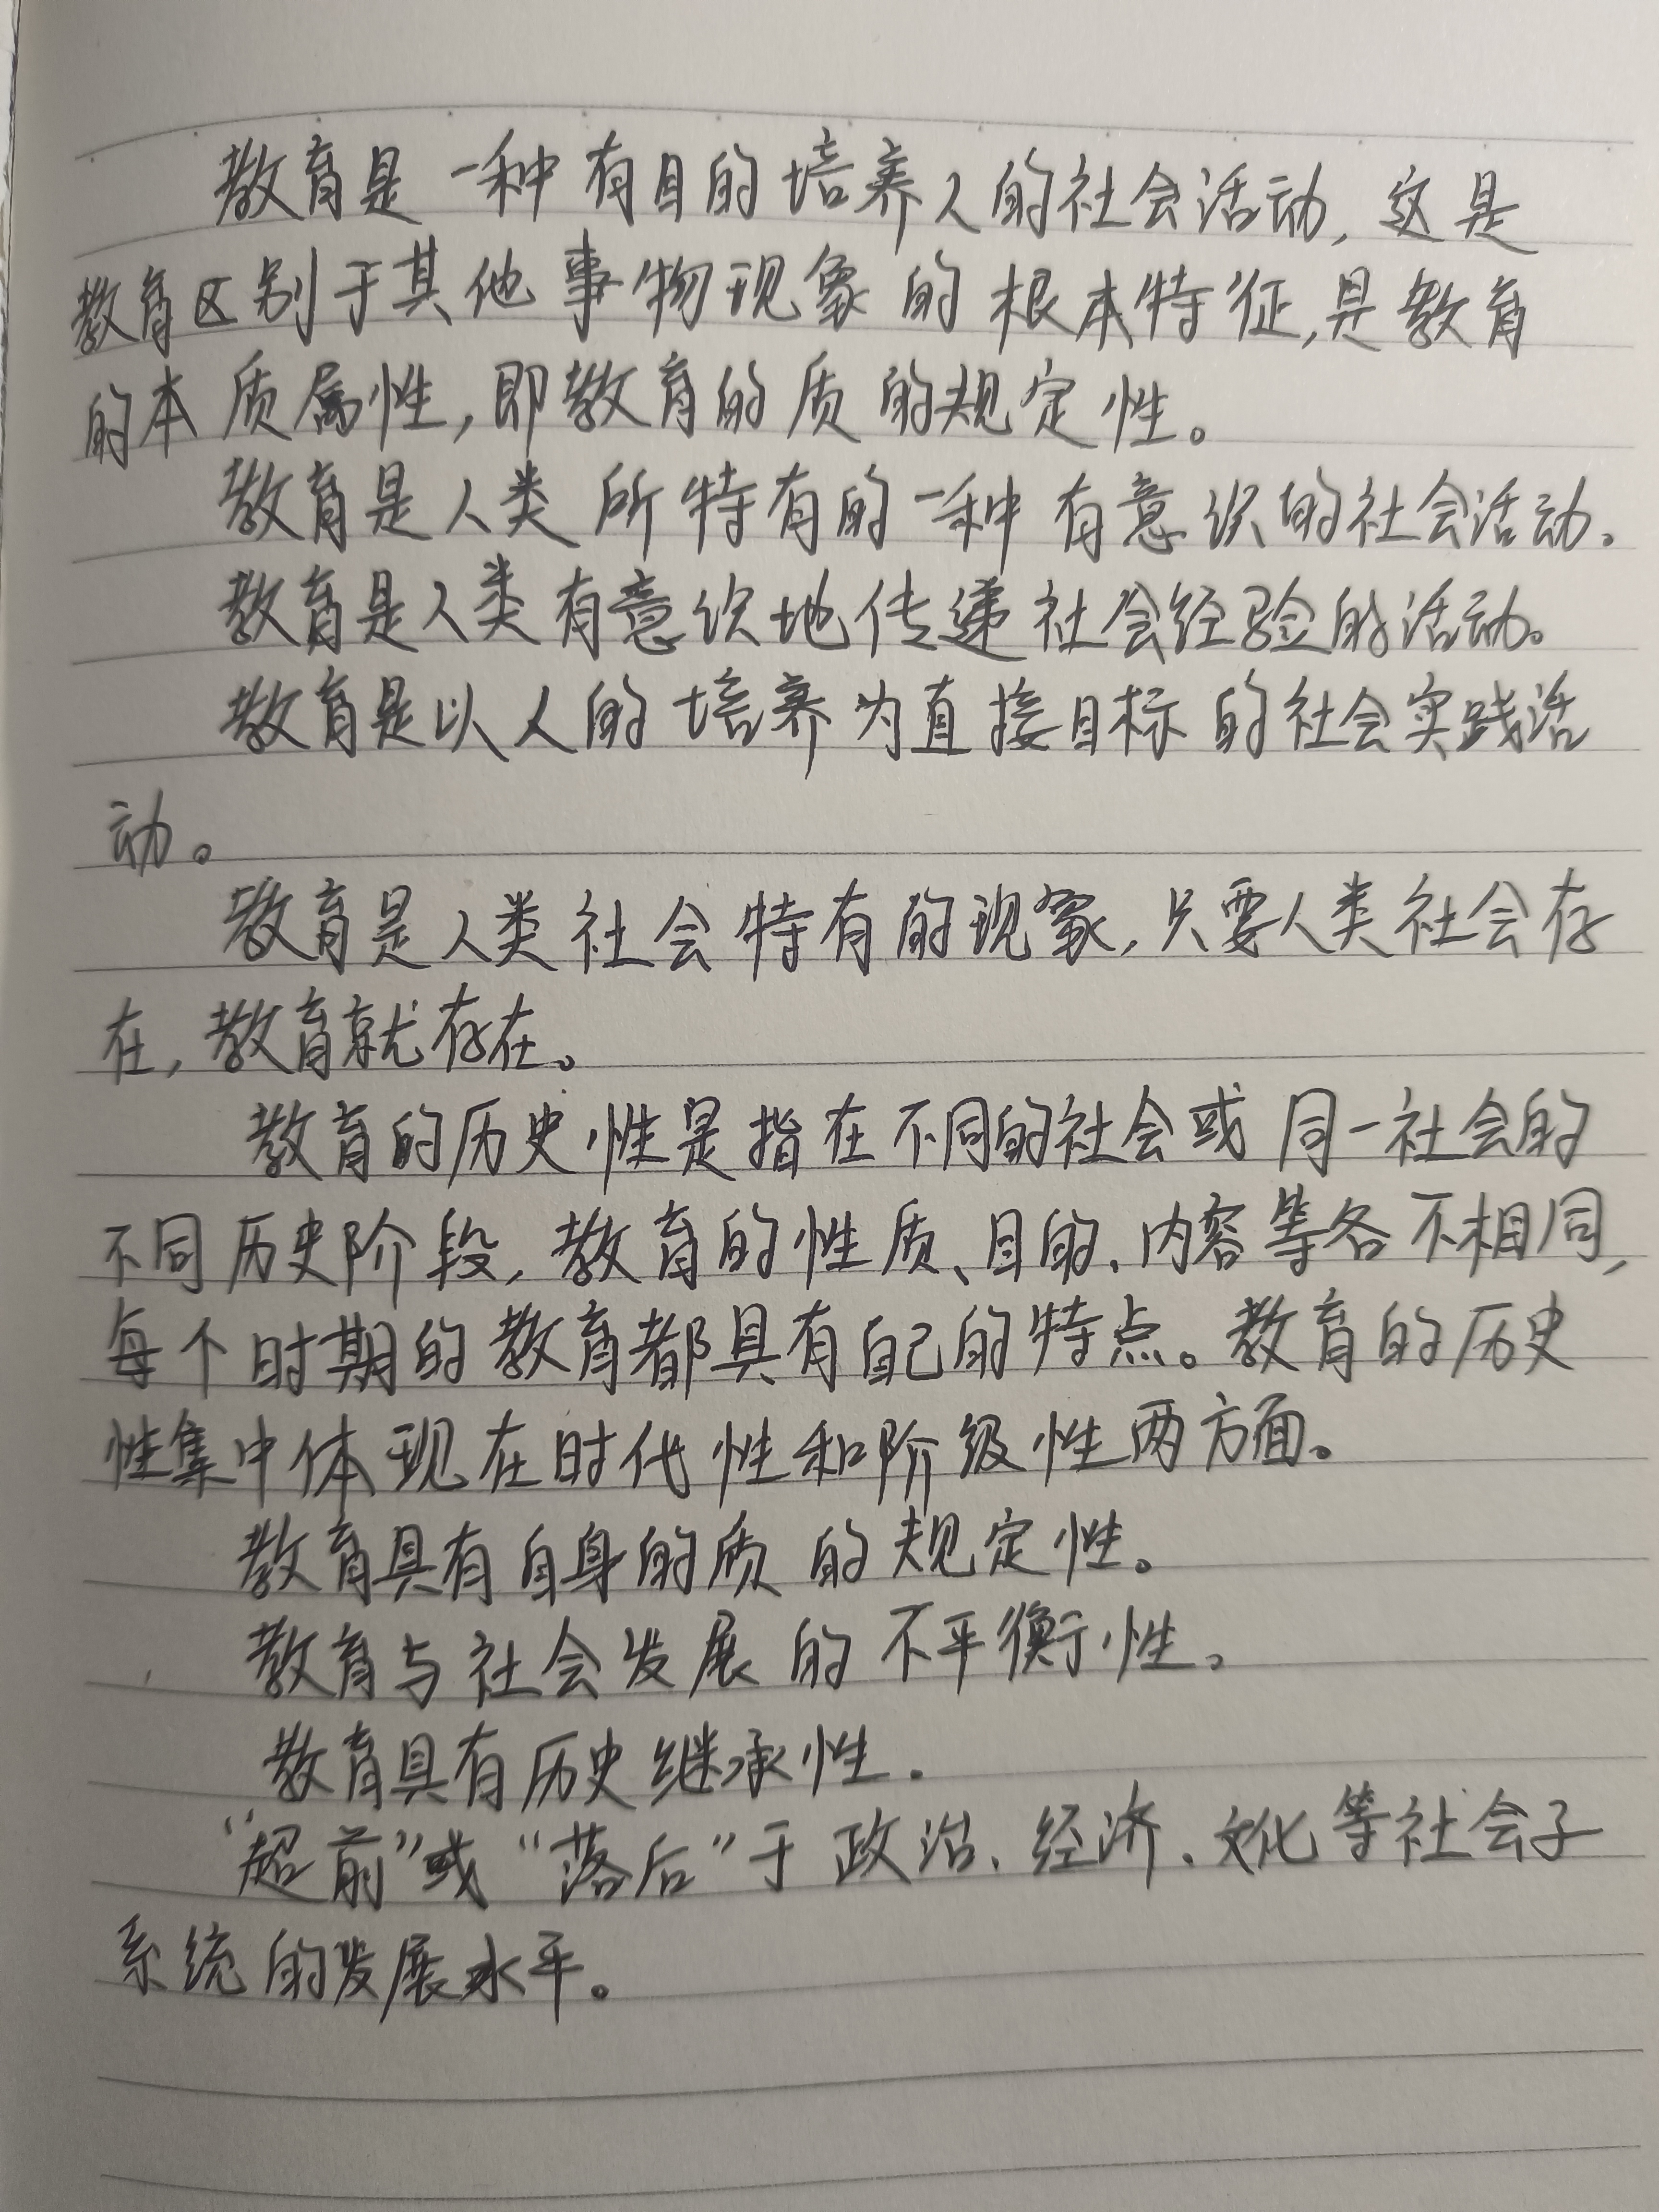 教育是一种有目的培养人的社会活动,这是
教育区别于其他事物现象的根本特征,是教育
的本质属性,即教育的质的规定性。
教育是人类所特有的一种有意识的社会活动。
教育是人类有意识地传递社会经验的活动。
教育是以人的培养为直接目标的社会实践活
动。
教育是人类社会特有的现象,只要人类社会存
在,教育就存在。
教育的历史性是指在不同的社会或同一社会的
不同历史阶段,教育的性质、目的、内容等各不相同,
每个时期的教育都具有自己的特点。教育的历史
性集中体现在时代性和阶级性两方面。
教育具有自身的质的规定性。
教育与社会发展的不平衡性。
教育具有历史继承性.
“超前”或“落后”于政治、经济、文化等社会子
系统的发展水平。